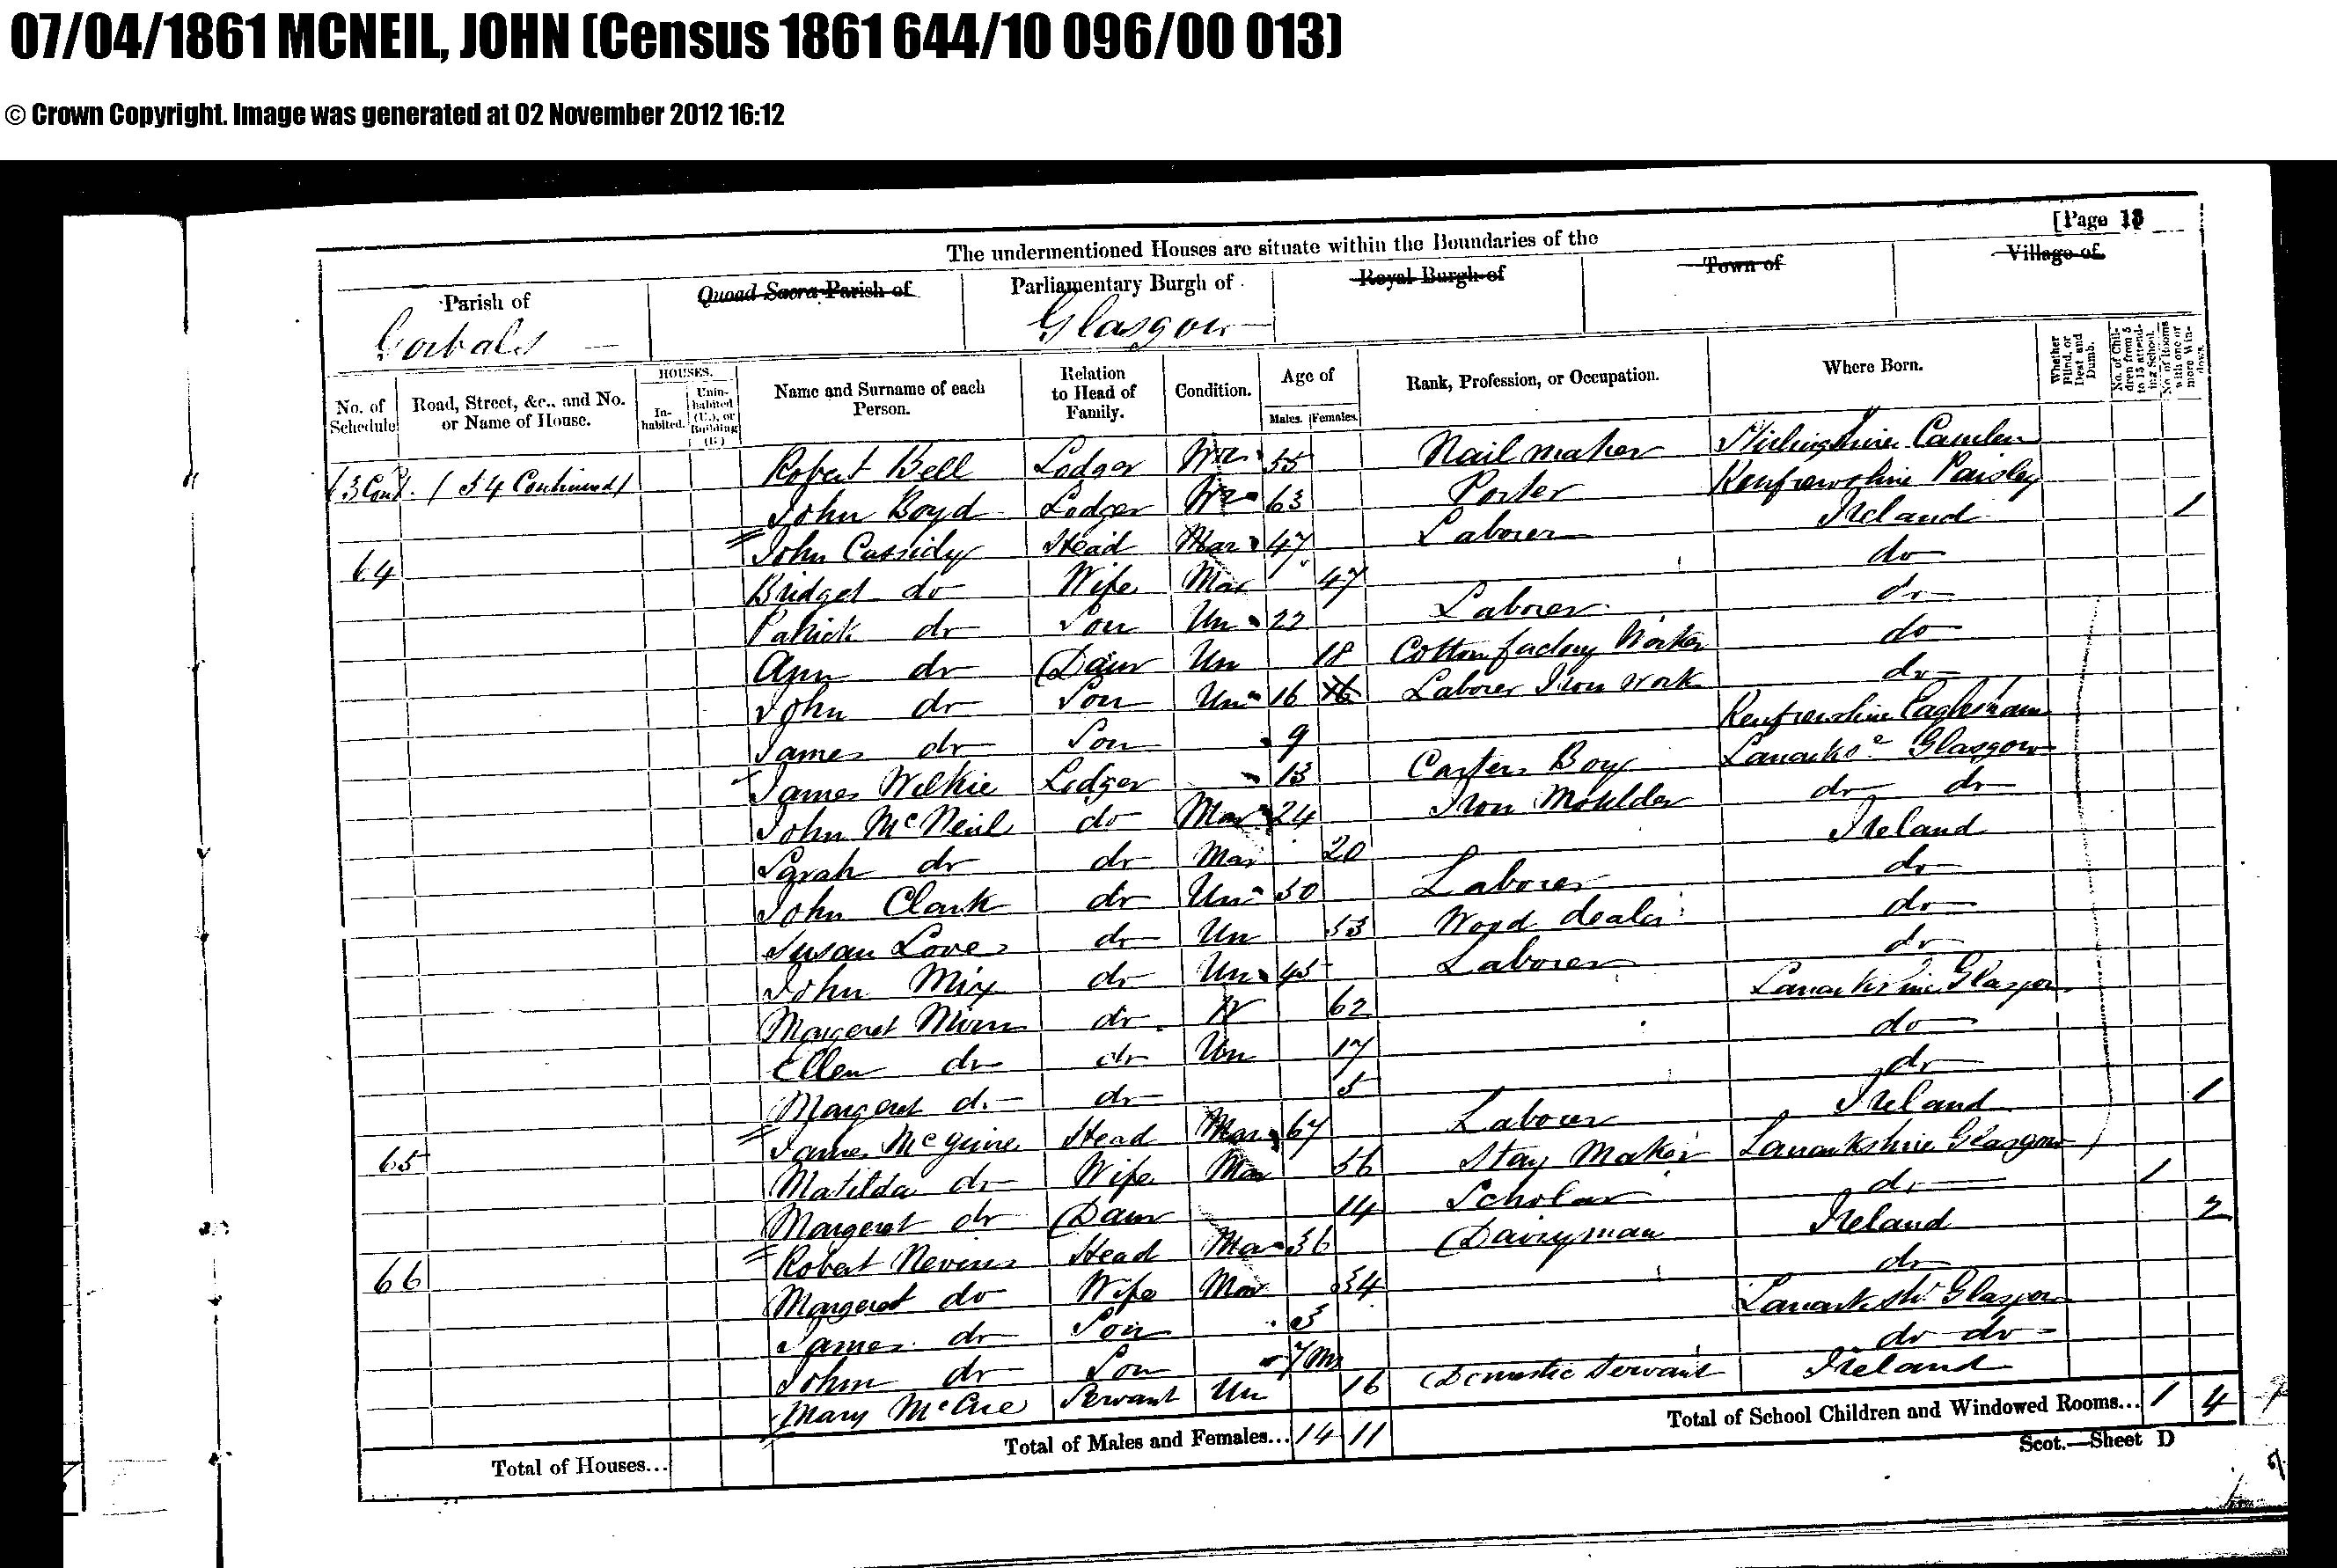 07/04/1861 MCNEIL, JOHN (Census 1861 644/10 096/00 013)
© Crown Copyright. Image was generated at 02 November 2012 16:12
[Page 13
The undermentioned Houses are situate within the Boundaries of the
Parish of Quoad Sacra Parish of Parliamentary Burgh of Royal Burgh of Town of Village of
Gorbals Glasgow
No. of Schedule Road, Street, &c., and No. or Name of House. HOUSES. Inhabited. Uninhabited (U.), or Building (B.) Name and Surname of each Person. Relation to Head of Family. Condition. Age of Males. Females. Rank, Profession, or Occupation. Where Born. Whether Blind, or Deaf and Dumb. No. of Children from 5 to 15 attending School. No. of Rooms with one or more Windows.
63 Cont. (54 Continued) Robert Bell Lodger 55 Nail maker Stirlingshire
John Boyd Lodger 63 Porter Renfrewshire Paisley
64 John Cassidy Head Mar 47 Laborer Ireland 1
Bridget do Wife Mar 47 do
Patrick do Son Un 22 Laborer do
Ann do Daur Un 18 Cotton factory Worker do
John do Son Un 16 16 Laborer Iron Work do
James do Son 9 Renfrewshire Eaglesham
James Wilkie Lodger 13 Carters Boy Lanarks^e Glasgow
John McNeil do Mar 24 Iron Moulder do do
Sarah do do Mar 20 Ireland
John Clark do Un 50 Laborer do
Susan Love do Un 53 Wood dealer do
John Mix do Un 45 Laborer do
Margaret do W 62 Lanarkshire Glasgow
Ellen do do Un 17 do
Margaret do do 5 do
65 James McGuire Head Mar 67 Laborer Ireland 1
Matilda do Wife Mar 56 Stay Maker Lanarkshire Glasgow
Margaret do Daur 14 Scholar do 1
66 Robert Nevins Head Mar 36 Dairyman Ireland 2
Margaret do Wife Mar 34 do
James do Son 3 Lanarksh Glasgow
John do Son 7 Ms do do
Mary McCue Servant Un 16 Domestic Servant Ireland
Total of Houses... Total of Males and Females... 14 11 Total of School Children and Windowed Rooms... 1 4
Scot.—Sheet D